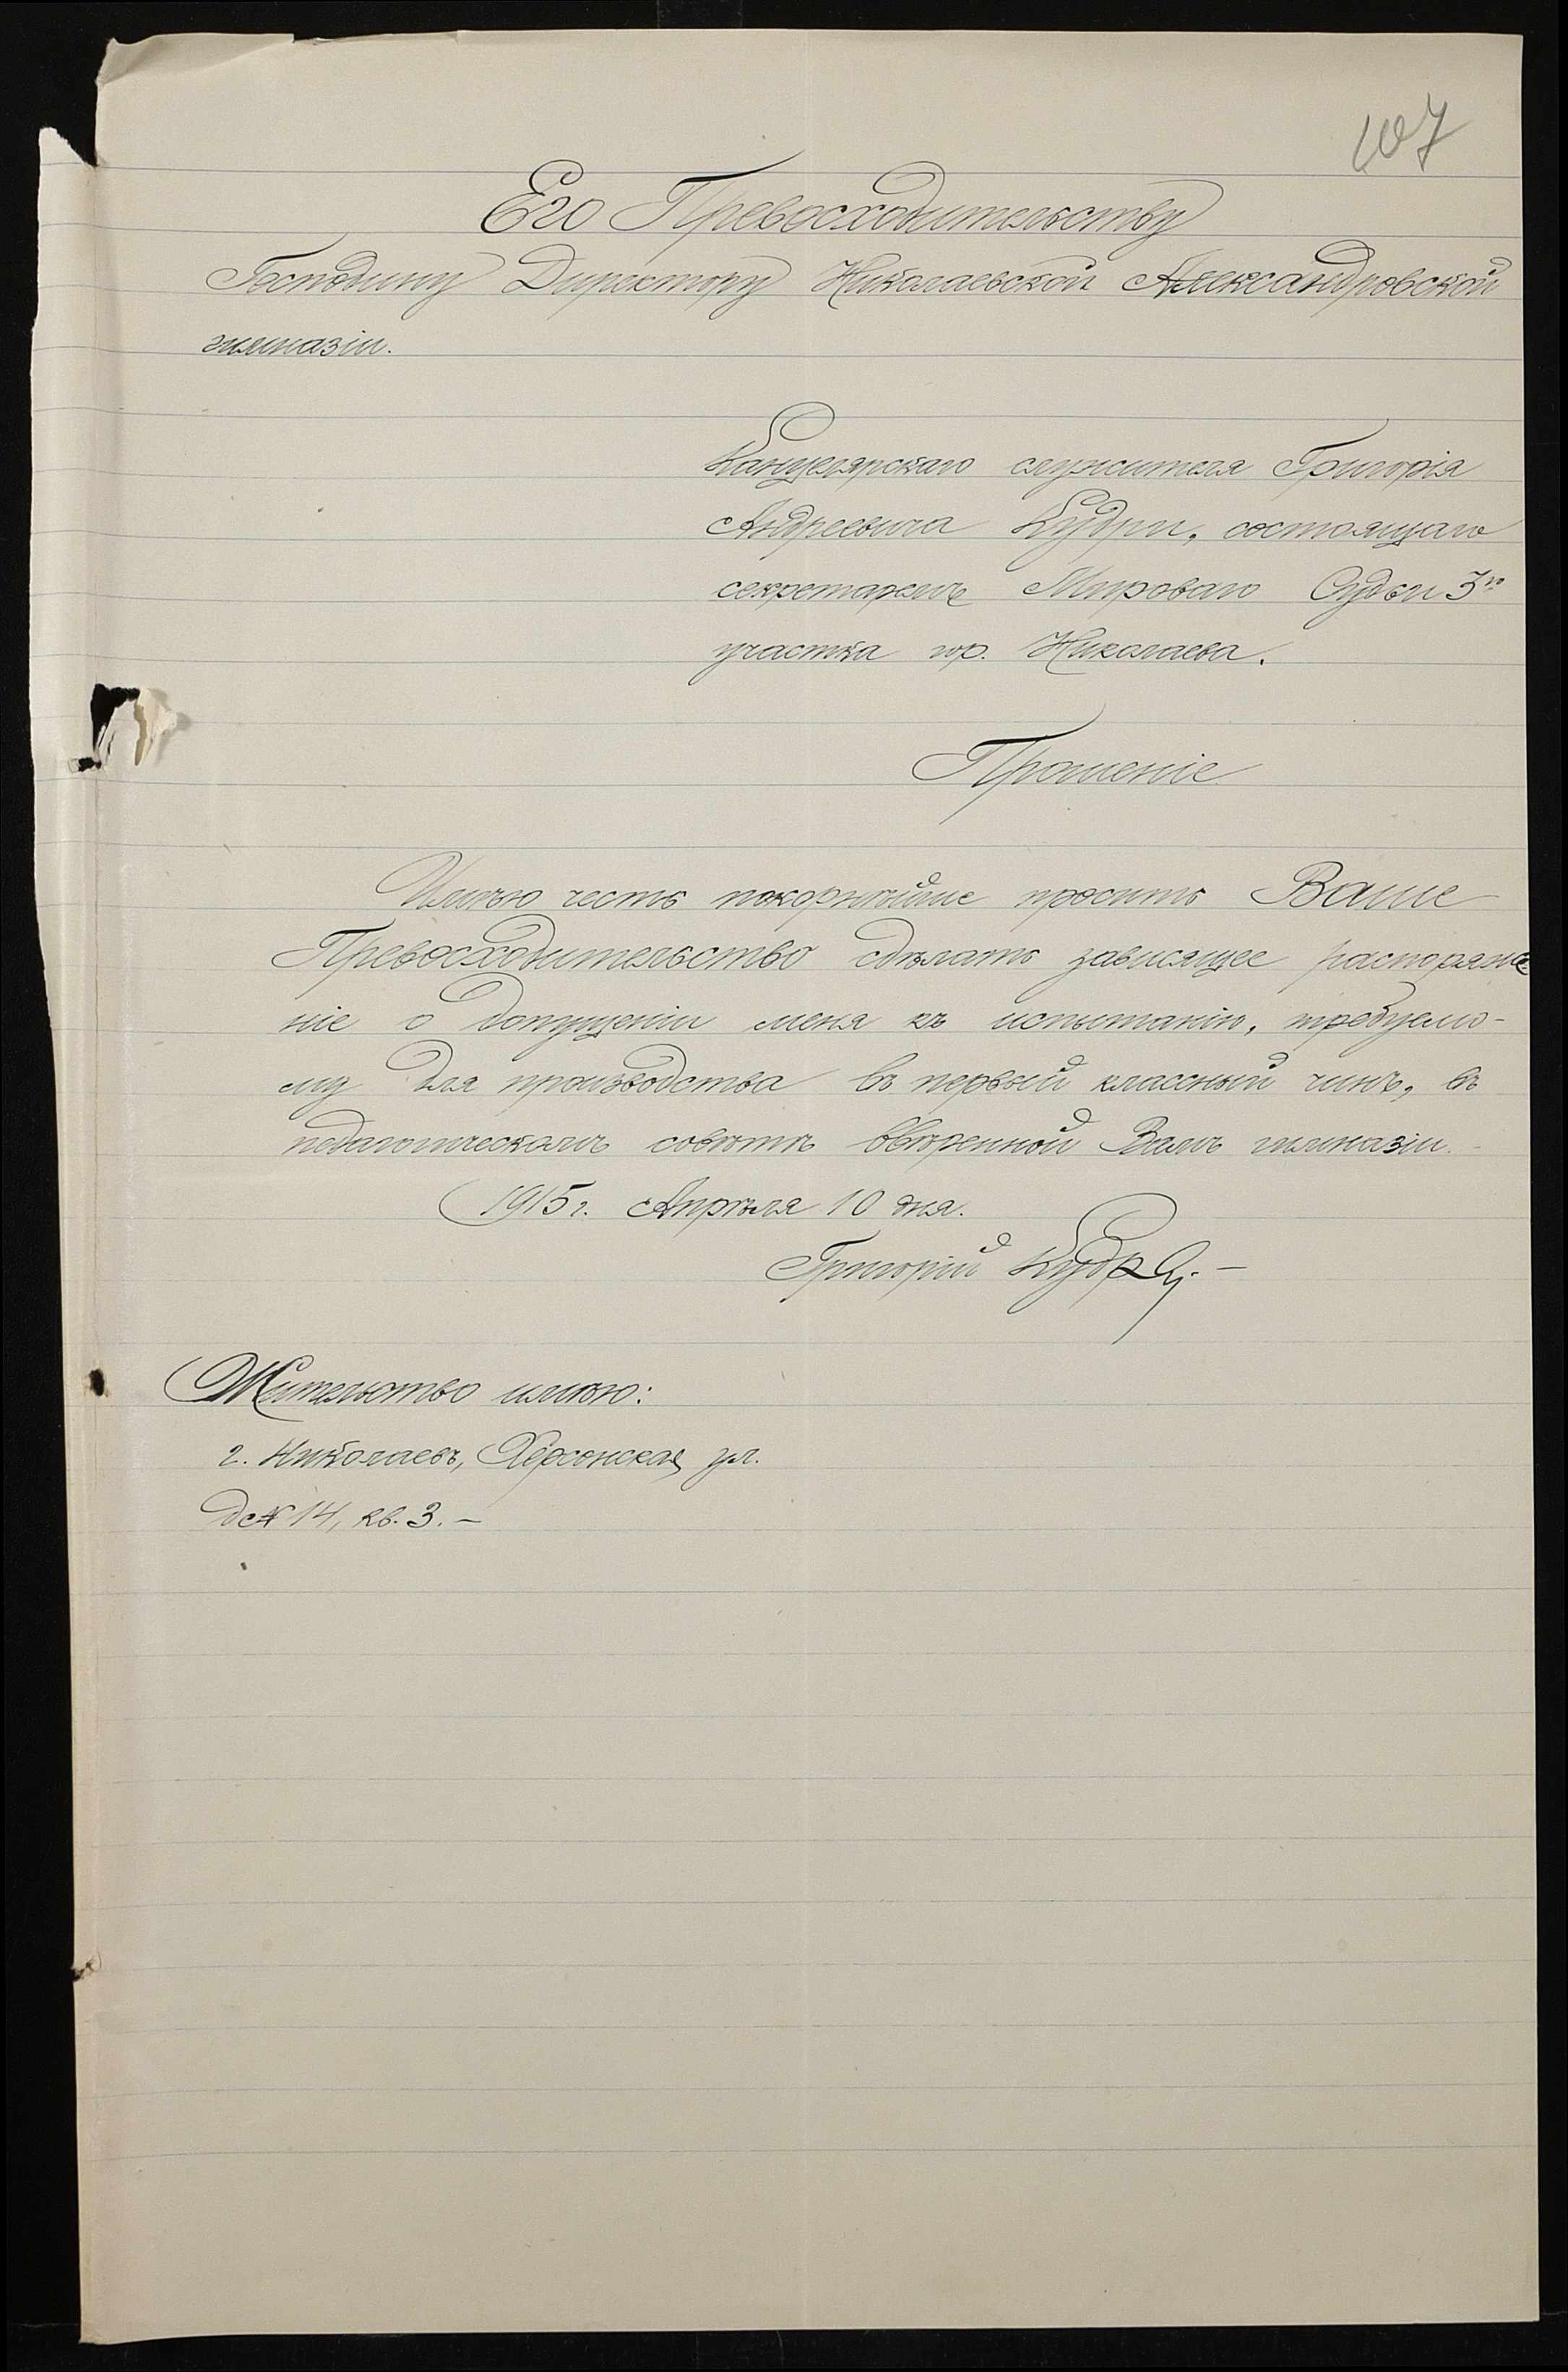 107
Его Превосходительству
Господину Директору Николаевской Александровской
гимназіи.
Канцелярскаго служителя Григорія
Андреевича Кудри, состоящаго
секретаремъ Мирового Судьи 3го
участка гор. Николаева.
Прошеніе
Имѣю честь покорнѣйше просить Ваше
Превосходительство сдѣлать зависящее распоряже
ніе о допущеніи меня къ испытанію, требуемо-
му для производства въ первый классный чинъ, въ
педагогическомъ совѣтѣ ввѣренной Вамъ гимназіи.-
1915 г. Апрѣля 10 дня.
Григорій Кудря.-
Жительство имѣю:
г. Николаевъ, Херсонская ул.
д. № 14, кв. 3.-